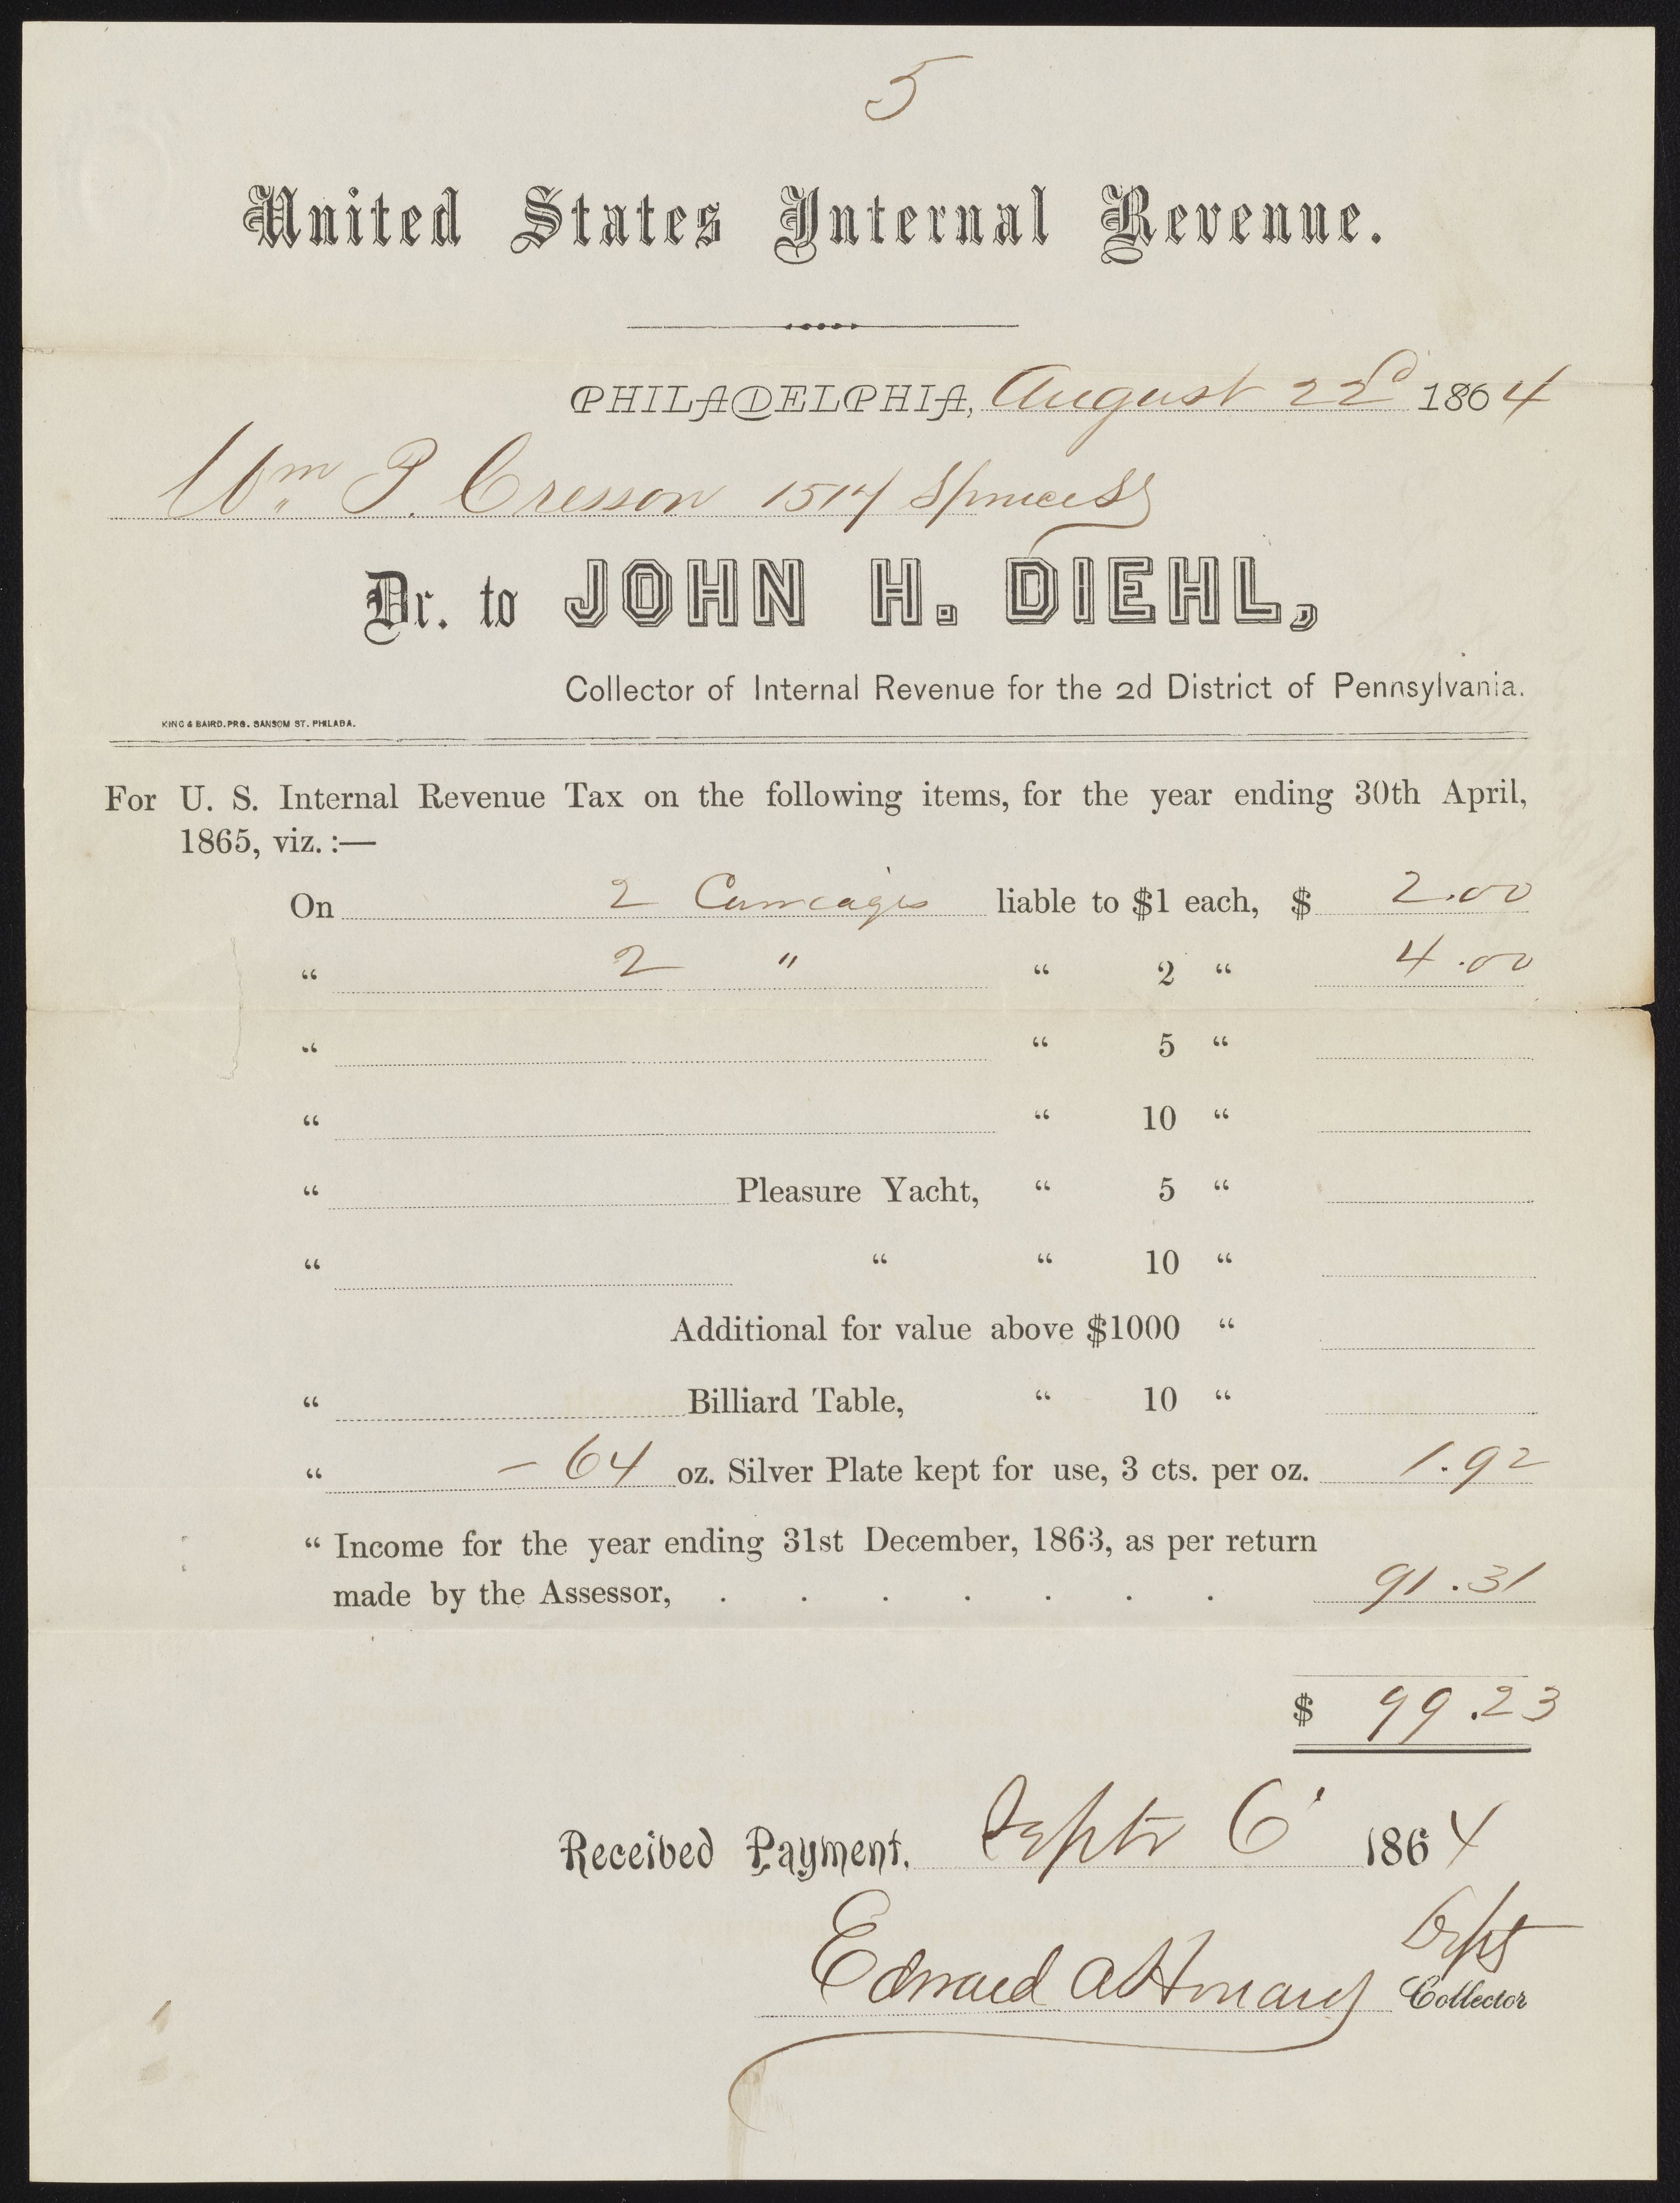 5
United States Internal Revenue.
PHILADELPHIA, August 22d 1864
Wm P. Cresson 1514 Spruce St
Dr. to JOHN H. DIEHL,
Collector of Internal Revenue for the 2d District of Pennsylvania.
KING & BAIRD, PRS. SANSOM ST. PHILADA.
For U. S. Internal Revenue Tax on the following items, for the year ending 30th April,
1865, viz.:—
On 2 Carriages liable to $1 each, $ 2.00
“ 2 " “ 2 “ 4.00
“ “ 5 “
“ “ 10 “
“ Pleasure Yacht, “ 5 “
“ “ “ 10 “
Additional for value above $1000 “
“ Billiard Table, “ 10 “
“ – 64 oz. Silver Plate kept for use, 3 cts. per oz. 1.92
“ Income for the year ending 31st December, 1863, as per return
made by the Assessor, . . . . . . . 91.31
$ 99.23
Received Payment, Septr 6 1864
Edward A
Collector